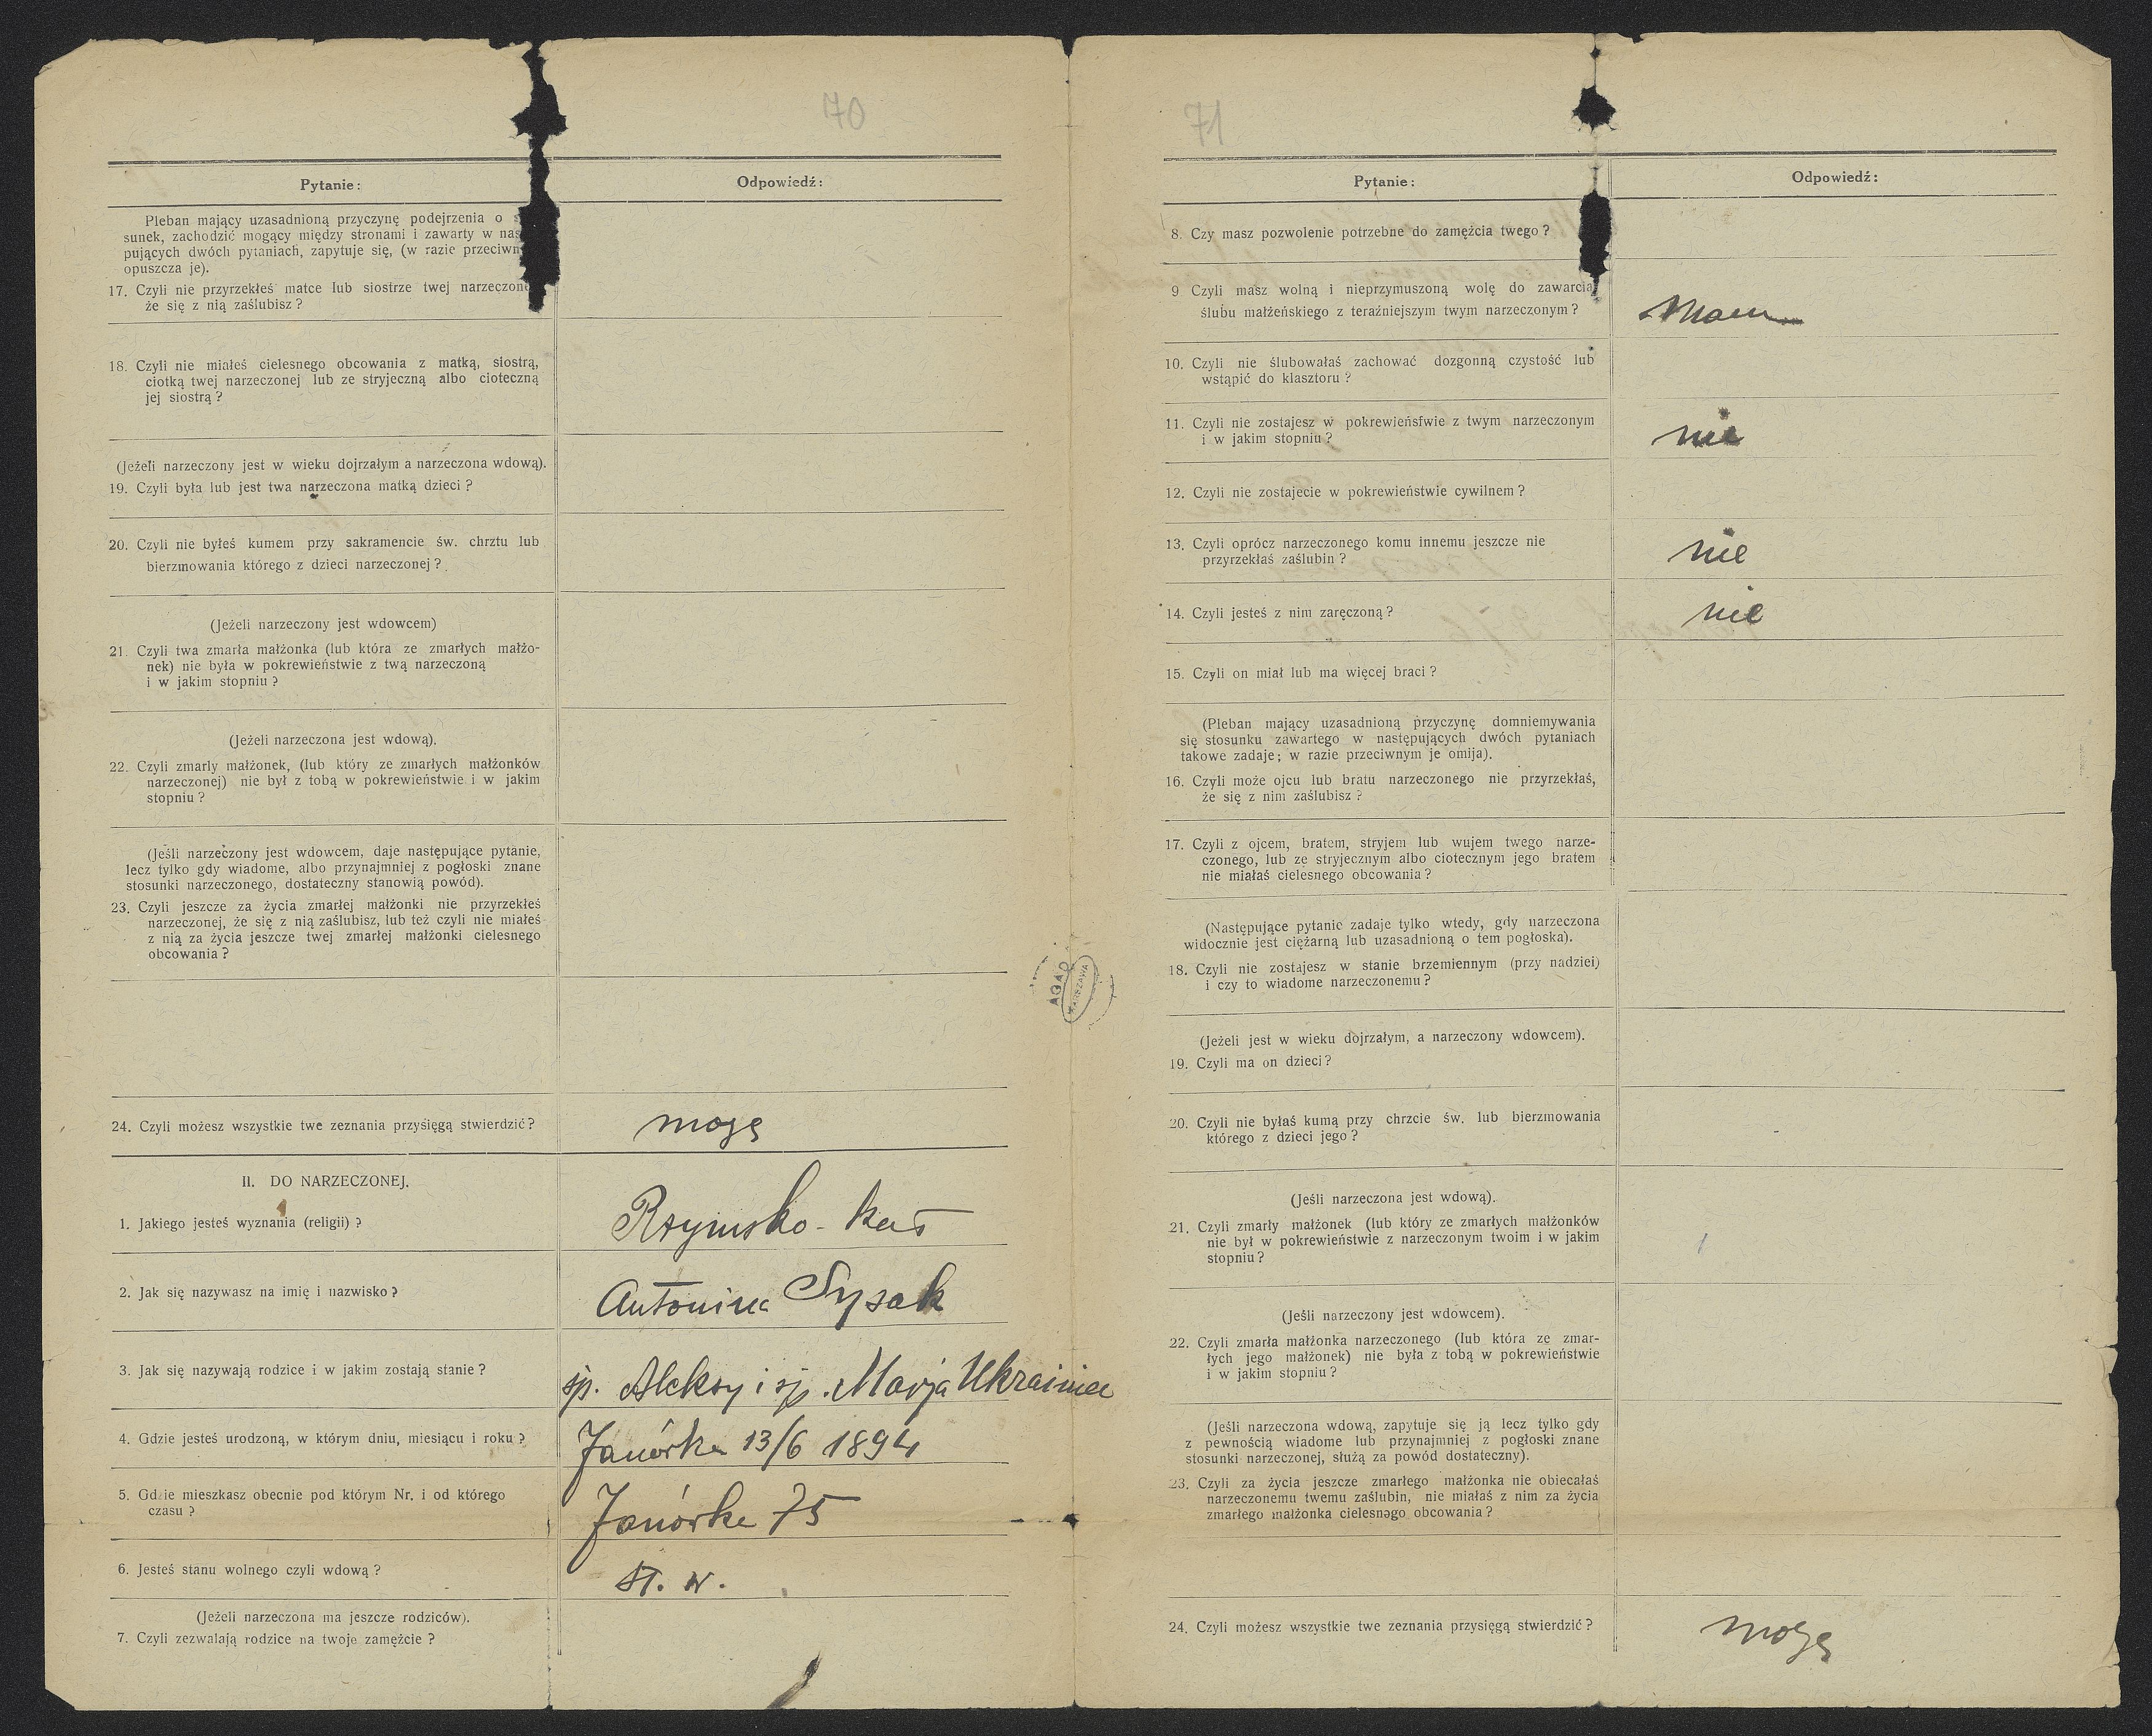 70
Pytanie:
Odpowiedź:
Pleban mający uzasadnioną przyczynę podejrzenia o
sunek, zachodzić mogący między stronami i zawarty w nas
pujących dwóch pytaniach, zapytuje się, (w razie przeciwn
opuszcza je).
17. Czyli nie przyrzekłeś matce lub siostrze twej narzeczone
że się z nią zaślubisz?
18. Czyli nie miałeś cielesnego obcowania z matką, siostrą,
ciotką twej narzeczonej lub ze stryjeczną albo cioteczną
jej siostrą?
(Jeżeli narzeczony jest w wieku dojrzałym a narzeczona wdową).
19. Czyli była lub jest twa narzeczona matką dzieci?
20. Czyli nie byłeś kumem przy sakramencie św. chrztu lub
bierzmowania którego z dzieci narzeczonej?
(Jeżeli narzeczony jest wdowcem)
21. Czyli twa zmarła małżonka (lub która ze zmarłych małżo-
nek) nie była w pokrewieństwie z twą narzeczoną
i w jakim stopniu?
(Jeżeli narzeczona jest wdową).
22. Czyli zmarly małżonek, (lub który ze zmarłych małżonków
narzeczonej) nie był z tobą w pokrewieństwie i w jakim
stopniu?
(Jeśli narzeczony jest wdowcem, daje następujące pytanie,
lecz tylko gdy wiadome, albo przynajmniej z pogłoski znane
stosunki narzeczonego, dostateczny stanowią powód).
23. Czyli jeszcze za życia zmarłej małżonki nie przyrzekłeś
narzeczonej, że się z nią zaślubisz, lub też czyli nie miałeś
z nią za życia jeszcze twej zmarłej małżonki cielesnego
obcowania?
24. Czyli możesz wszystkie twe zeznania przysięgą stwierdzić?
mogę
II. DO NARZECZONEJ.
1. Jakiego jesteś wyznania (religii)?
Rzymsko-kat
2. Jak się nazywasz na imię i nazwisko?
Antonina Sysak
3. Jak się nazywają rodzice i w jakim zostają stanie?
śp. Aleksy i śp. Marja Ukrainiec
4. Gdzie jesteś urodzoną, w którym dniu, miesiącu i roku?
Janówka 13/6 1894
5. Gdzie mieszkasz obecnie pod którym Nr. i od którego
czasu?
Janówka 75
6. Jesteś stanu wolnego czyli wdową?
st. w.
(Jeżeli narzeczona ma jeszcze rodziców).
7. Czyli zezwalają rodzice na twoje zamężcie?
AGAD
WARSZAWA
71
Pytanie:
Odpowiedź:
8. Czy masz pozwolenie potrzebne do zamężcia twego?
9 Czyli masz wolną i nieprzymuszoną wolę do zawarcia
ślubu małżeńskiego z teraźniejszym twym narzeczonym?
Mam
10. Czyli nie ślubowałaś zachować dozgonną czystość lub
wstąpić do klasztoru?
11. Czyli nie zostajesz w pokrewieństwie z twym narzeczonym
i w jakim stopniu?
nie
12. Czyli nie zostajecie w pokrewieństwie cywilnem?
13. Czyli oprócz narzeczonego komu innemu jeszcze nie
przyrzekłaś zaślubin?
nie
14. Czyli jesteś z nim zaręczoną?
nie
15. Czyli on miał lub ma więcej braci?
(Pleban mający uzasadnioną przyczynę domniemywania
się stosunku zawartego w następujących dwóch pytaniach
takowe zadaje; w razie przeciwnym je omija).
16. Czyli może ojcu lub bratu narzeczonego nie przyrzekłaś,
że się z nim zaślubisz?
17. Czyli z ojcem, bratem, stryjem lub wujem twego narze-
czonego, lub ze stryjecznym albo ciotecznym jego bratem
nie miałaś cielesnego obcowania?
(Następujące pytanie zadaje tylko wtedy, gdy narzeczona
widocznie jest ciężarną lub uzasadnioną o tem pogłoska).
18. Czyli nie zostajesz w stanie brzemiennym (przy nadziei)
i czy to wiadome narzeczonemu?
(Jeżeli jest w wieku dojrzałym, a narzeczony wdowcem).
19. Czyli ma on dzieci?
20. Czyli nie byłaś kumą przy chrzcie św. lub bierzmowania
którego z dzieci jego?
(Jeśli narzeczona jest wdową).
21. Czyli zmarły małżonek (lub który ze zmarłych małżonków
nie był w pokrewieństwie z narzeczonym twoim i w jakim
stopniu?
(Jeśli narzeczony jest wdowcem).
22. Czyli zmarła małżonka narzeczonego (lub która ze zmar-
łych jego małżonek) nie była z tobą w pokrewieństwie
i w jakim stopniu?
(Jeśli narzeczona wdową, zapytuje się ją lecz tylko gdy
z pewnością wiadome lub przynajmniej z pogłoski znane
stosunki narzeczonej, służą za powód dostateczny).
23. Czyli za życia jeszcze zmarłego małżonka nie obiecałaś
narzeczonemu twemu zaślubin, nie miałaś z nim za życia
zmarłego małżonka cielesnego obcowania?
24. Czyli możesz wszystkie twe zeznania przysięgą stwierdzić?
mogę